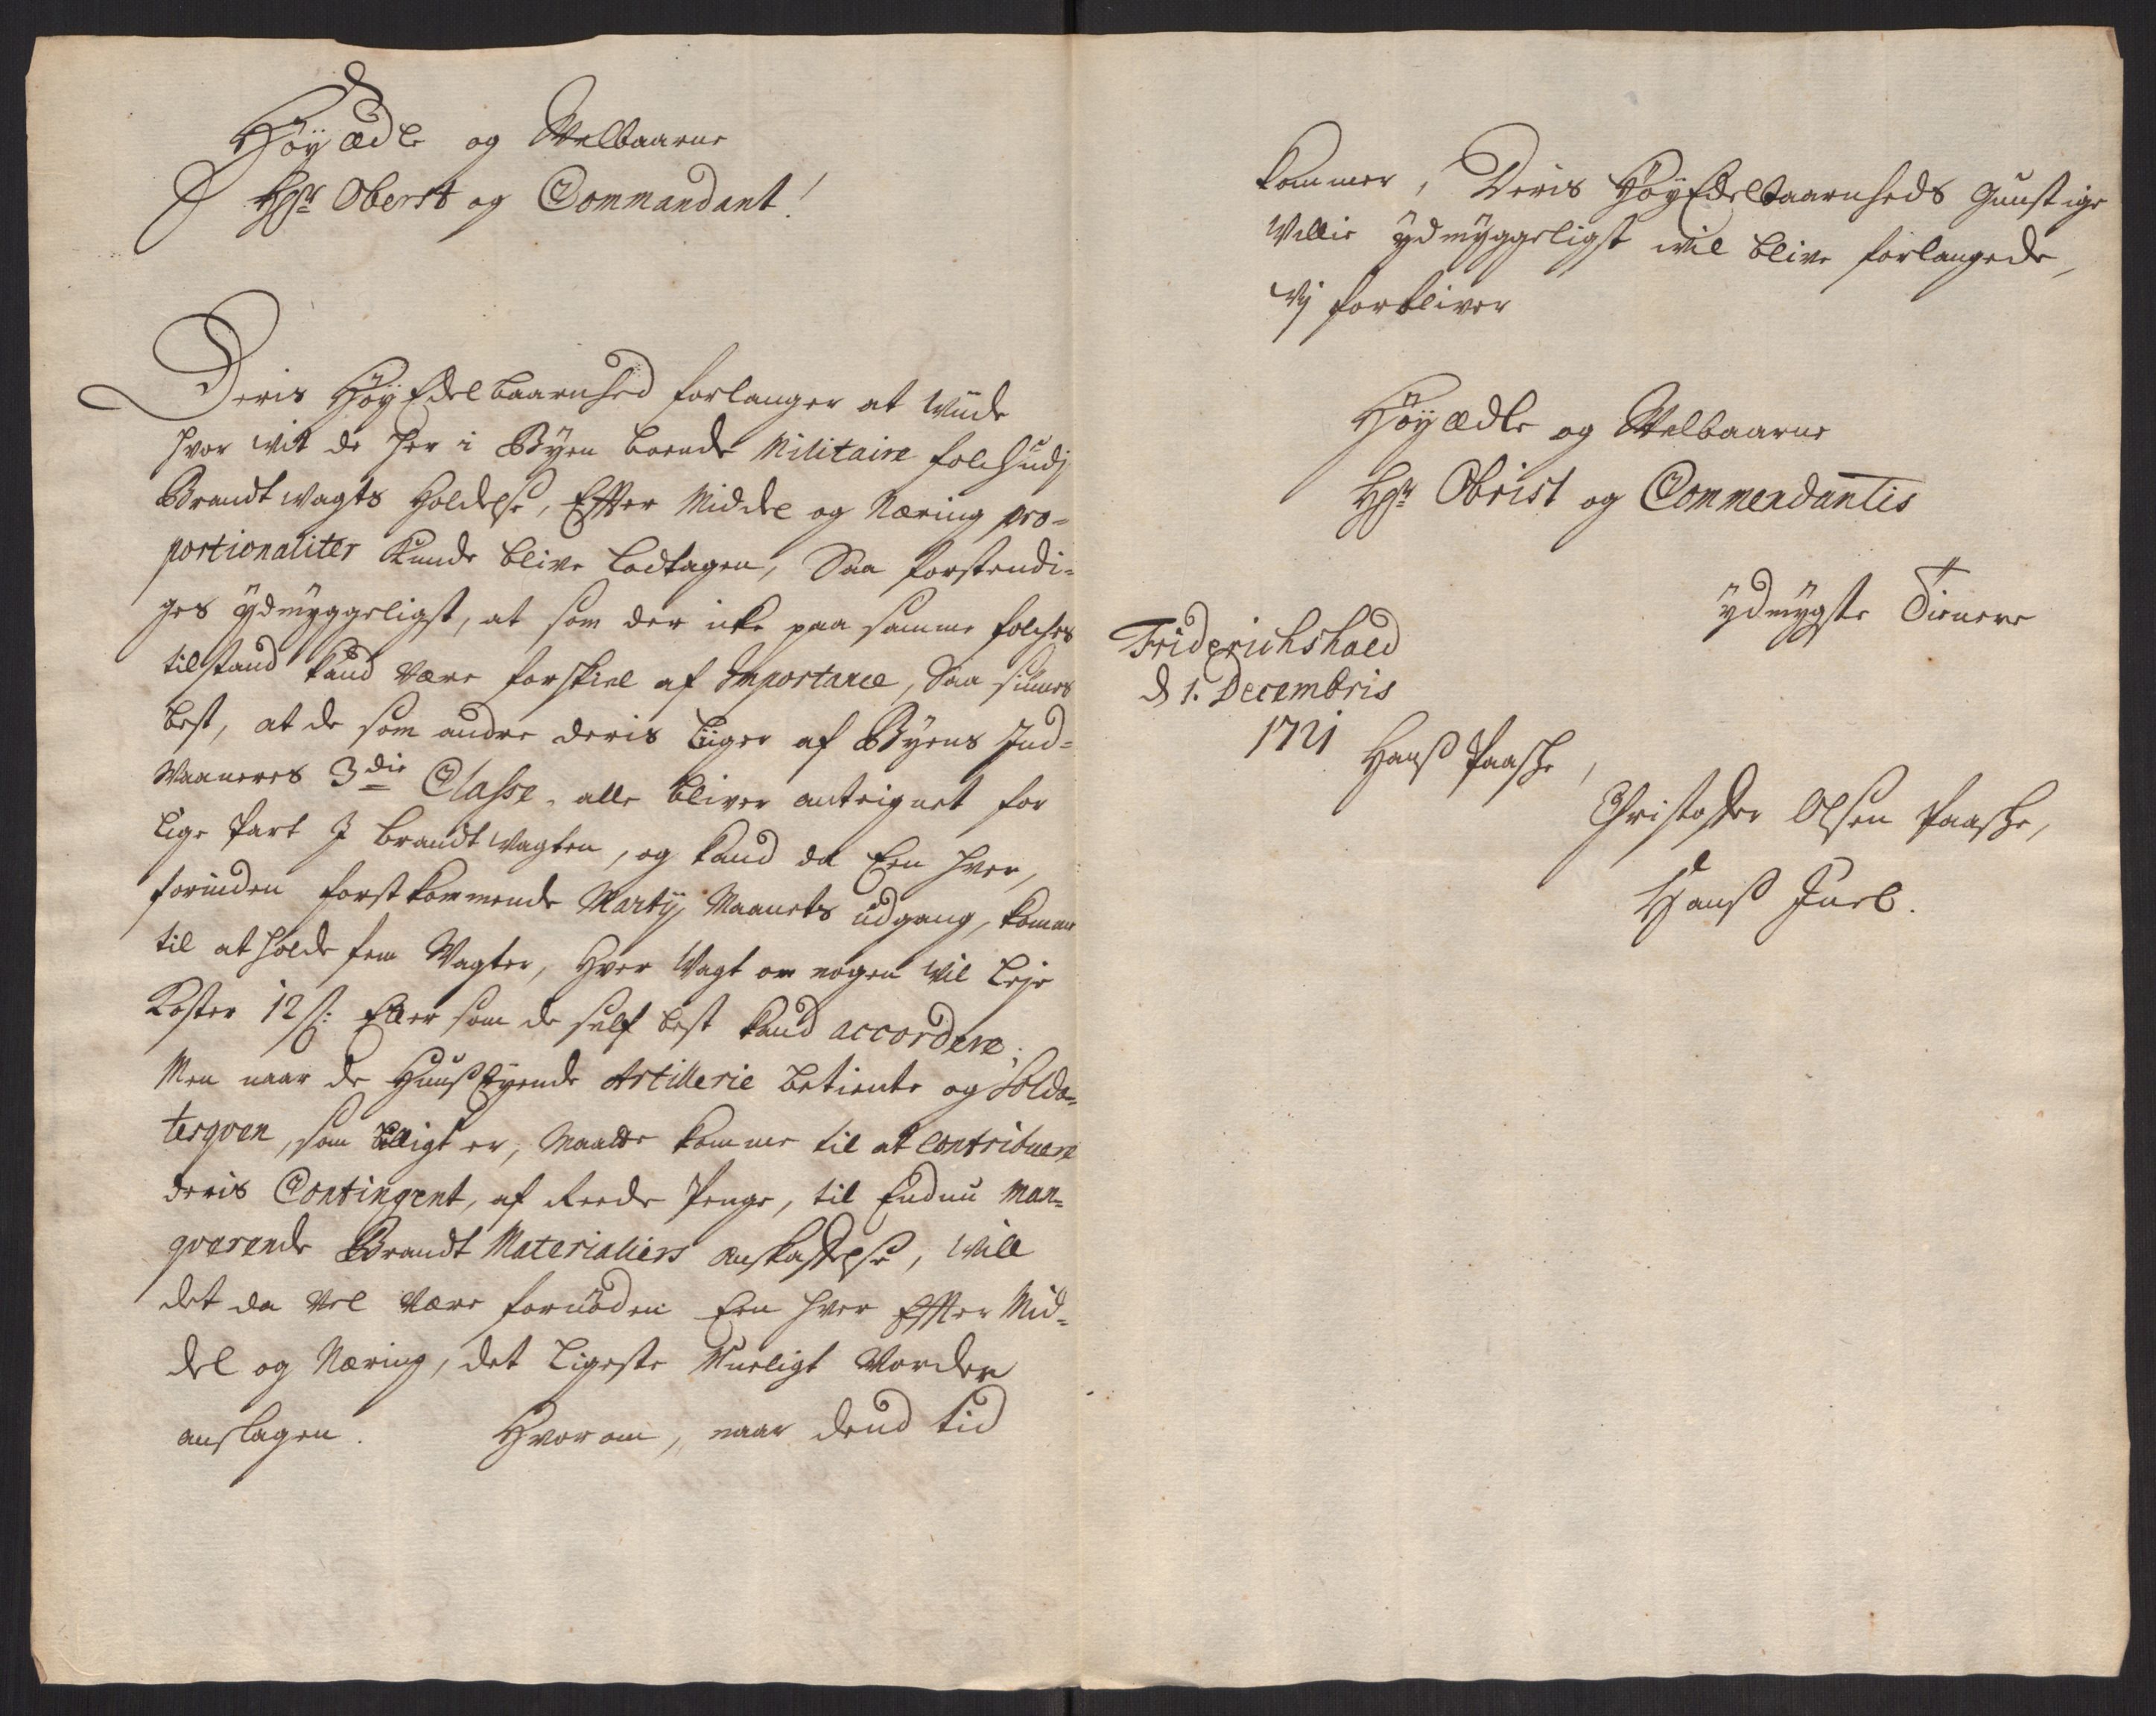 Høyædle og Welbaarne
Hr Oberst og Commandant!
Deris HøyEdelbaarnhed forlanger at wiide
hvor wit de her i Byen boende Militaire folch udj
Brandtwagts Holdelse, Effter Middel og Næring pro-
portionaliter Kunde blive ladtagen, Saa forstendi-
ges ydmyggeligst, at som der icke paa samme folches
tilstand kand være forskiel af Importance, Saa siunes
best, at de som andre deris liiger af Byens Ind-
Waaneres 3die Classe, alle bliver anteignet for
lige Part J brandtwagten, og kand da Een hver,
forinden forstkommende Martij Maanets udgang, komme
til at holde fem Wagter, hver Wagt om nogen wil leje
Koster 12 s: Eller som de self best kand accordere;
Men naar de HuusEyende Artillerie betiente og Solda-
tesqven, som billigt er, Maatte komme til at contribuere
deris Contingent, af Reede Penge, til Endnu man-
qverende Brandt Materialiers anskaffelse, Will
det da vel være fornøden Een hver Effter Mid-
del og Næring, det ligeste Mueligt Vorder
anslagen. Hvorom, naar dend tid
kommer, Deris HøyEdelbaarnheds gunstige
Willie ydmyggeligst wil blive forlangede,
Wj forbliver
Høyædle og Welbaarne
Hr Obrist og Commendantis
ydmygste Tienere
Friderichshald
d 1. Decembris
1721
Hans Paasche,
Christoffer Olsen Paasche,
Hans Juel.